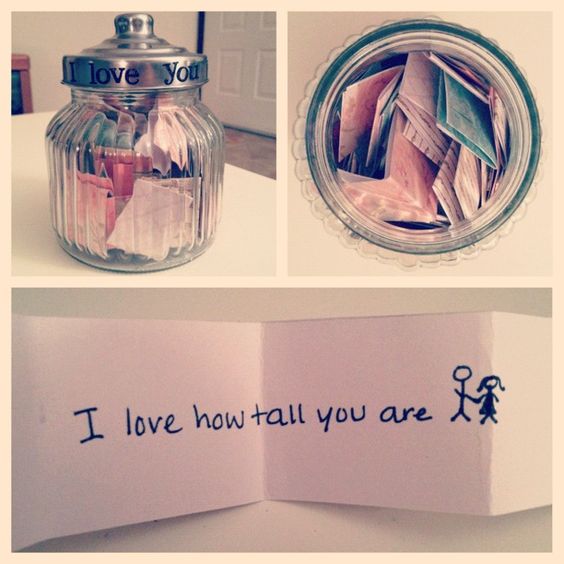 I love You
I love how tall you are